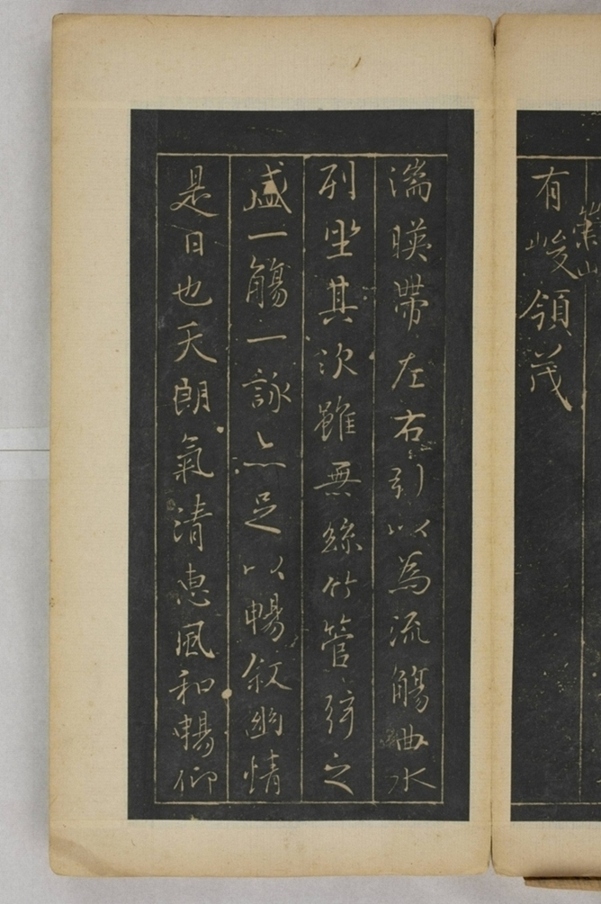 有峻領茂
湍暎帶左右引以為流觴曲水
列坐其次雖無絲竹管弦之
盛一觴一詠亦足以暢叙幽情
是日也天朗氣清惠風和暢仰